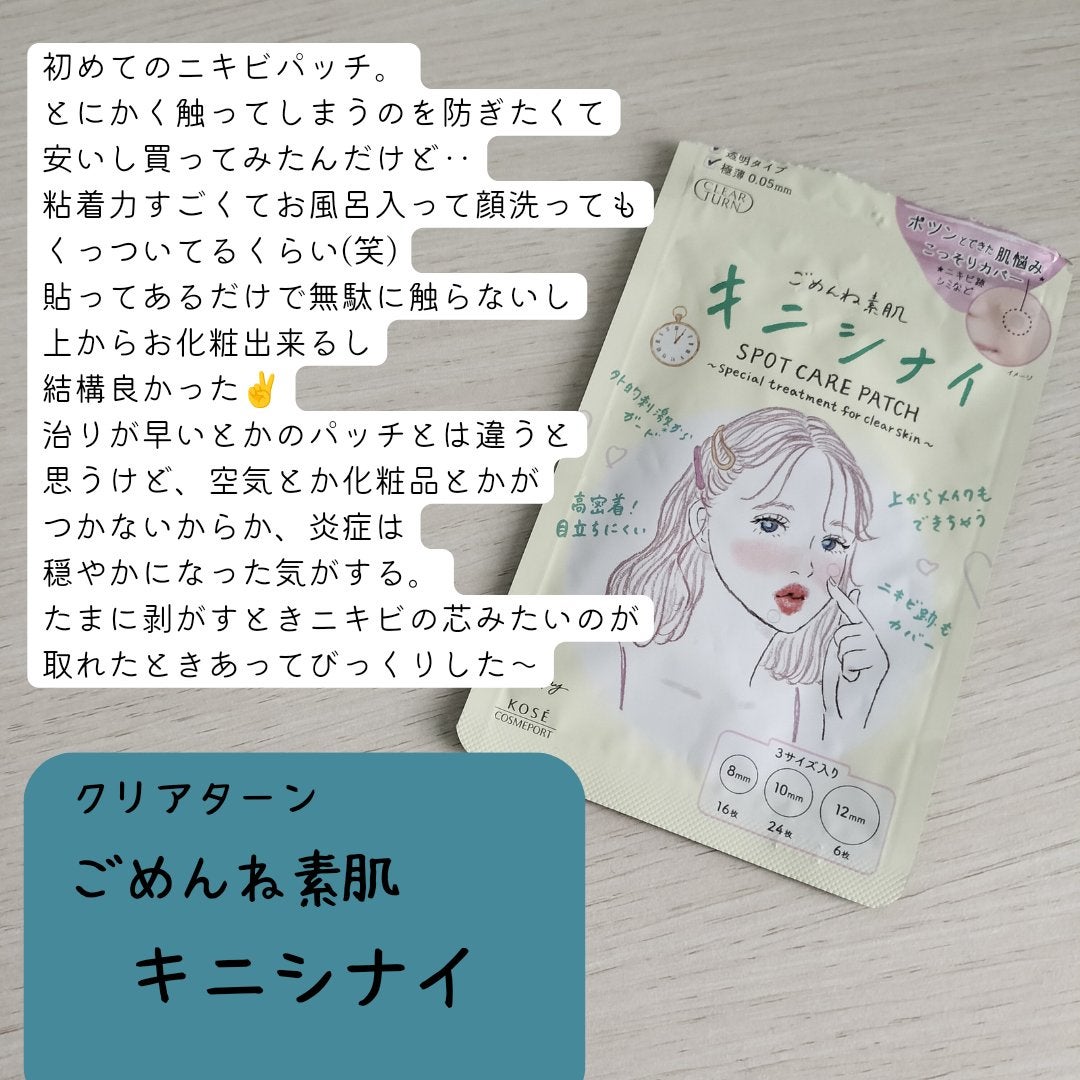 初めてのニキビパッチ。
とにかく触ってしまうのを防ぎたくて
安いし買ってみたんだけど‥
粘着力すごくてお風呂入って顔洗っても
くっついてるくらい(笑)
貼ってあるだけで無駄に触らないし
上からお化粧出来るし
結構良かった✌
治りが早いとかのパッチとは違うと
思うけど、空気とか化粧品とかが
つかないからか、炎症は
穏やかになった気がする。
たまに剥がすときニキビの芯みたいのが
取れたときあってびっくりした～
透明タイプ
✔極薄 0.05mm
CLEAR
TURN
ポツンとできた肌悩み
こっそりカバー
★ニキビ跡
シミなど
イメージ
ごめんね素肌
キニシナイ
SPOT CARE PATCH
~special treatment for clear skin~
外的刺激から
ガード
高密着!
目立ちにくい
上からメイクも
できちゃう
ニキビ跡も
カバー
KOSÉ
COSMEPORT
3サイズ入り
8mm
16枚
10mm
24枚
12mm
6枚
クリアターン
ごめんね素肌
キニシナイ